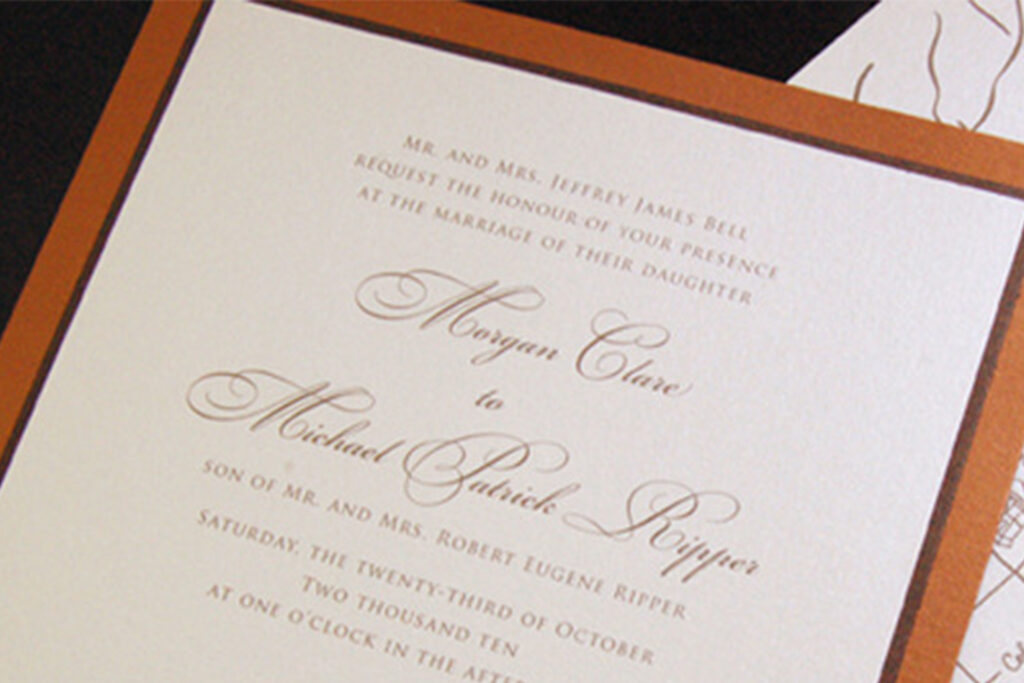 Mr. and Mrs. Jeffrey James Bell
request the honour of your presence
at the marriage of their daughter
Morgan Clare
to
Michael Patrick Ripper
son of Mr. and Mrs. Robert Eugene Ripper
Saturday, the twenty-third of October
Two thousand ten
at one o'clock in the